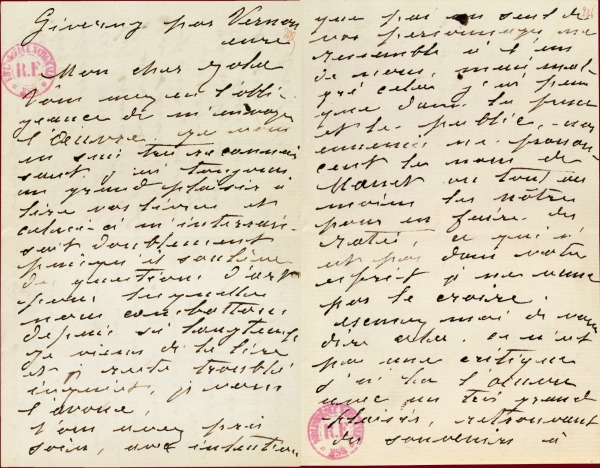 Giverny par Vernon
eure
Mon cher Zola
Vous avez eu l'obli-
geance de m'envoyer
l'Œuvre. je vous
en suis très reconnais-
sant j'ai toujours
un grand plaisir à
lire vos livres et
celui-ci m'intéres-
sait doublement
puisqu'il soulève
des questions d'art
pour lesquelles
nous combattons
depuis si longtemps
je viens de le lire
et je reste troublé
inquiet, je vous
l'avoue,
Vous avez pris
soin, avec intention
que pas un seul de
vos personnages ne
ressemble à l'un
de nous, mais mal-
gré cela j'ai peur
que dans la presse
et le public, nos
ennemis ne pronon-
cent le nom de
Manet ou tout au
moins les nôtres
pour en faire des
ratés, ce qui n'
est pas dans votre
esprit je ne veux
pas le croire.
Excusez moi de vous
dire cela. ce n'est
pas une critique
j'ai lu l'Œuvre
avec un très grand
plaisir, retrouvant
des souvenirs à
R.F.
R.F.
MSS